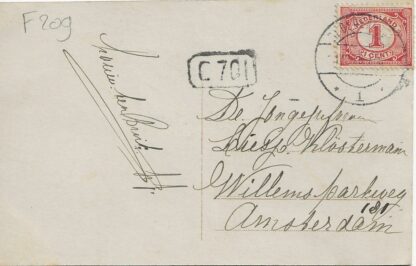 F 209
C 701
NEDERLAND
1
CENT
1
De Jongejuffrouw
Kloosterman
Willemsparkweg
181
Amsterdam